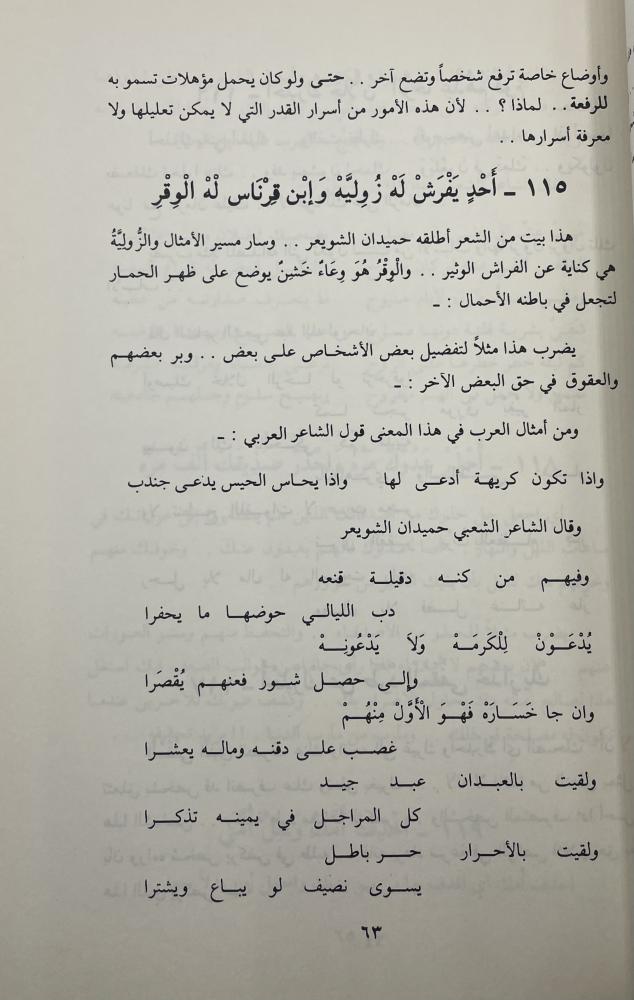 وأوضاع خاصة ترفع شخصاً وتضع آخر . . حتى ولو كان يحمل مؤهلات تسمو به
للرفعة . . لماذا ؟ . . لأن هذه الأمور من أسرار القدر التي لا يمكن تعليلها ولا
معرفة أسرارها . .
١١٥ ـ أَحْدٍ يَفْرَشْ لَهْ زُولِيَّهْ وَإبْن قِرْنَاس لْهْ الْوِقْرِ
هذا بيت من الشعر أطلقه حميدان الشويعر . . وسار مسير الأمثال والزُّولِيَّةُ
هي كناية عن الفراش الوثير . . والْوِقْرُ هُوَ وِعَاءٌ خَشِينٌ يوضع على ظهر الحمار
لتجعل في باطنه الأحمال : ـ
يضرب هذا مثلاً لتفضيل بعض الأشخاص على بعض . . وبر بعضهم
والعقوق في حق البعض الآخر : ـ
ومن أمثال العرب في هذا المعنى قول الشاعر العربي : ـ
واذا تكون كريهة أدعى لها واذا يحاس الحيس يدعى جندب
وقال الشاعر الشعبي حميدان الشويعر
وفيهم من كنه دقيلة قنعه
دب الليالي حوضها ما يحفرا
يُدْعَوْنْ لِلْكَرمَهْ وَلاَ يَدْعُونِهْ
وإلى حصل شور فعنهم يُقْصَرَا
وان جا خَسَارَهْ فَهْوَ الْأَوَّلْ مِنْهُمْ
غصب على دقنه وماله يعشرا
ولقيت بالعبدان عبد جيد
كل المراجل في يمينه تذكرا
ولقيت بالأحرار حر باطل
يسوى نصيف لو يباع ويشترا
٦٣